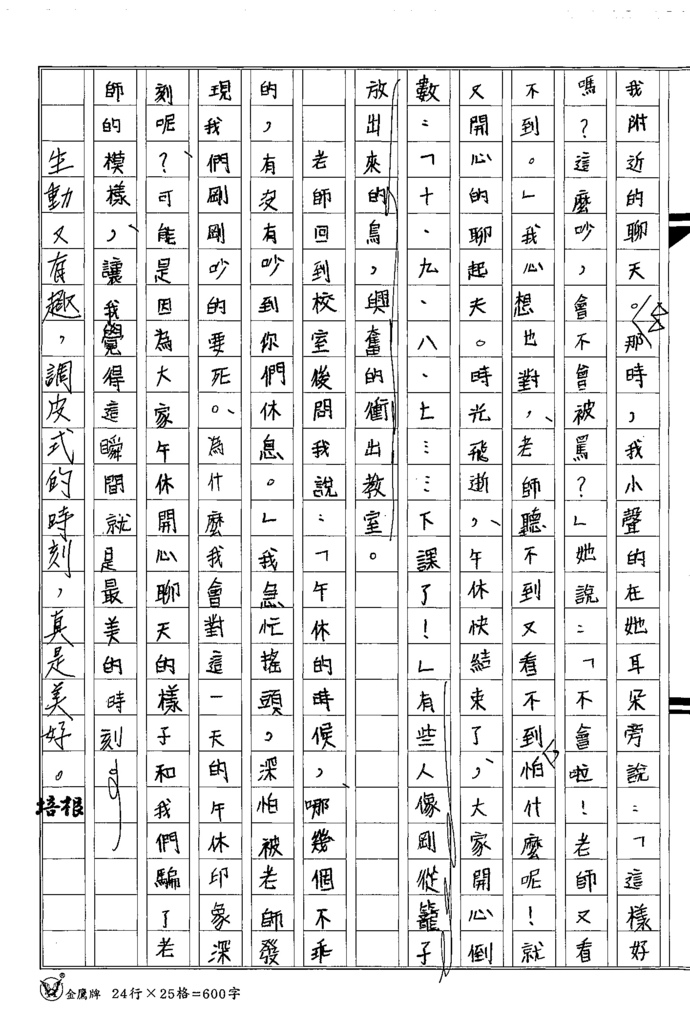 我附近的聊天。那時，我小聲的在她耳朵旁說：「這樣好
嗎？這麼吵，會不會被罵？」她說：「不會啦！老師又看
不到。」我心想也對，老師聽不到又看不到怕什麼呢！就
又開心的聊起天。時光飛逝，午休快結束了，大家開心倒
數：「十、九、八、七……下課了！」有些人像剛從籠子
放出來的鳥，興奮的衝出教室。
老師回到校室後問我說：「午休的時候，哪幾個不乖
的，有沒有吵到你們休息。」我急忙搖頭，深怕被老師發
現我們剛剛吵的要死。為什麼我會對這一天的午休印象深
刻呢？可能是因為大家午休開心聊天的樣子和我們騙了老
師的模樣，讓我覺得這瞬間就是最美的時刻。
生動又有趣，調皮式的時刻，真是美好。培根
金鷹牌 24行×25格=600字